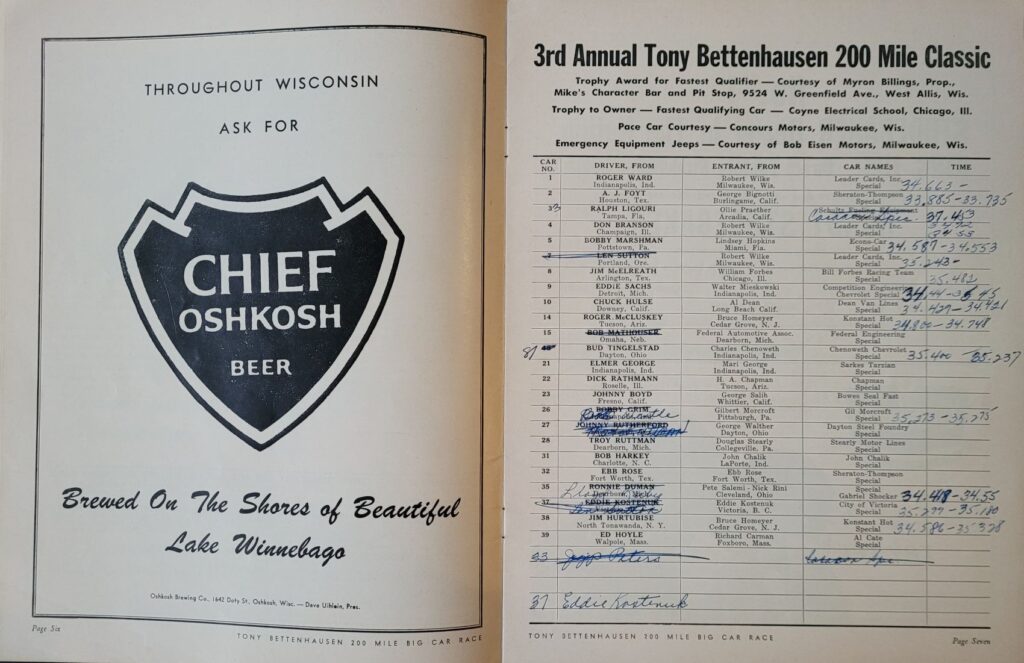 THROUGHOUT WISCONSIN
ASK FOR
CHIEF
OSHKOSH
BEER
Brewed On The Shores of Beautiful
Lake Winnebago
Oshkosh Brewing Co., 1642 Doty St., Oshkosh, Wisc. — Dave Uihlein, Pres.
Page Six
TONY BETTENHAUSEN 200 MILE BIG CAR RACE
3rd Annual Tony Bettenhausen 200 Mile Classic
Trophy Award for Fastest Qualifier — Courtesy of Myron Billings, Prop.,
Mike's Character Bar and Pit Stop, 9524 W. Greenfield Ave., West Allis, Wis.
Trophy to Owner — Fastest Qualifying Car — Coyne Electrical School, Chicago, Ill.
Pace Car Courtesy — Concours Motors, Milwaukee, Wis.
Emergency Equipment Jeeps — Courtesy of Bob Eisen Motors, Milwaukee, Wis.
CAR NO. DRIVER, FROM ENTRANT, FROM CAR NAMES TIME
1 ROGER WARD Robert Wilke Leader Cards, Inc.
Indianapolis, Ind. Milwaukee, Wis. Special 34.663 -
2 A. J. FOYT George Bignotti Sheraton-Thompson
Houston, Tex. Burlingame, Calif. Special 33.885 - 33.735
3 RALPH LIGOURI Ollie Praether
Tampa, Fla. Arcadia, Calif. 37.453
4 DON BRANSON Robert Wilke Leader Cards, Inc.
Champaign, Ill. Milwaukee, Wis. Special
5 BOBBY MARSHMAN Lindsey Hopkins Econo-Car
Pottstown, Pa. Miami, Fla. Special 34.587 - 34.553
7 LEN SUTTON Robert Wilke Leader Cards, Inc.
Portland, Ore. Milwaukee, Wis. Special 35.243 -
8 JIM McELREATH William Forbes Bill Forbes Racing Team
Arlington, Tex. Chicago, Ill. Special 35.482
9 EDDIE SACHS Walter Mieskowski Competition Engineering
Detroit, Mich. Indianapolis, Ind. Chevrolet Special
10 CHUCK HULSE Al Dean Dean Van Lines
Downey, Calif. Long Beach Calif. Special 34.427 - 34.421
14 ROGER McCLUSKEY Bruce Homeyer Konstant Hot
Tucson, Ariz. Cedar Grove, N. J. Special 34.800 - 34.748
15 BOB MATHOUSER Federal Automotive Assoc. Federal Engineering
Omaha, Neb. Dearborn, Mich. Special
81 BUD TINGELSTAD Charles Chenoweth Chenoweth Chevrolet
Dayton, Ohio Indianapolis, Ind. Special 35.400 - 35.237
21 ELMER GEORGE Mari George Sarkes Tarzian
Indianapolis, Ind. Indianapolis, Ind. Special
22 DICK RATHMANN H. A. Chapman Chapman
Roselle, Ill. Tucson, Ariz. Special
23 JOHNNY BOYD George Salih Bowes Seal Fast
Fresno, Calif. Whittier, Calif. Special
26 BOBBY GRIM Gilbert Morcroft Gil Morcroft
Pittsburgh, Pa. Special 35.273 - 35.275
27 JOHNNY RUTHERFORD George Walther Dayton Steel Foundry
Dayton, Ohio Special
28 TROY RUTTMAN Douglas Stearly Stearly Motor Lines
Dearborn, Mich. Collegeville, Pa. Special
31 BOB HARKEY John Chalik John Chalik
Charlotte, N. C. LaPorte, Ind. Special
32 EBB ROSE Ebb Rose Sheraton-Thompson
Fort Worth, Tex. Fort Worth, Tex. Special
35 RONNIE DUMAN Pete Salemi - Nick Rini
Dearborn, Mich. Cleveland, Ohio Gabriel Shocker 34.418 - 34.55
37 EDDIE KOSTENUK Eddie Kostenuk City of Victoria
Victoria, B. C. Special 35.277 - 35.180
38 JIM HURTUBISE Bruce Homeyer Konstant Hot
North Tonawanda, N. Y. Cedar Grove, N. J. Special 34.586 - 35.378
39 ED HOYLE Richard Carman Al Cate
Walpole, Mass. Foxboro, Mass. Special
33
37 Eddie Kostenuk
TONY BETTENHAUSEN 200 MILE BIG CAR RACE
Page Seven